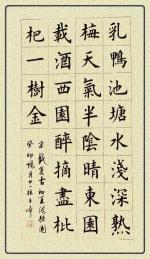 乳鴨池塘水淺深熟
梅天氣半陰晴東園
載酒西園醉摘盡枇
杷一樹金
宋戴復古初夏遊張園